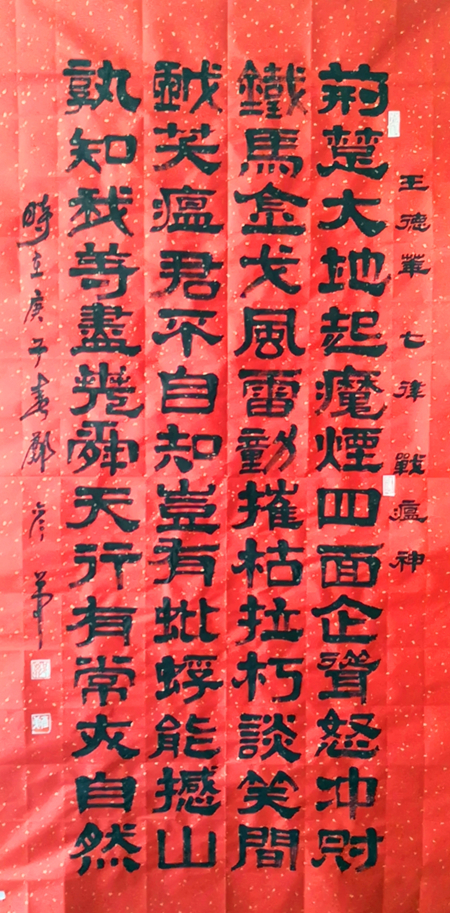 王德華七律戰瘟神
荊楚大地起魔煙四面企聲怒冲
鐵馬金戈風雷動摧枯拉朽談笑間
笑瘟君不自知豈有蚍蜉能撼山
孰知我等盡堯舜天行有常大自然
時在庚子春鄭彦華